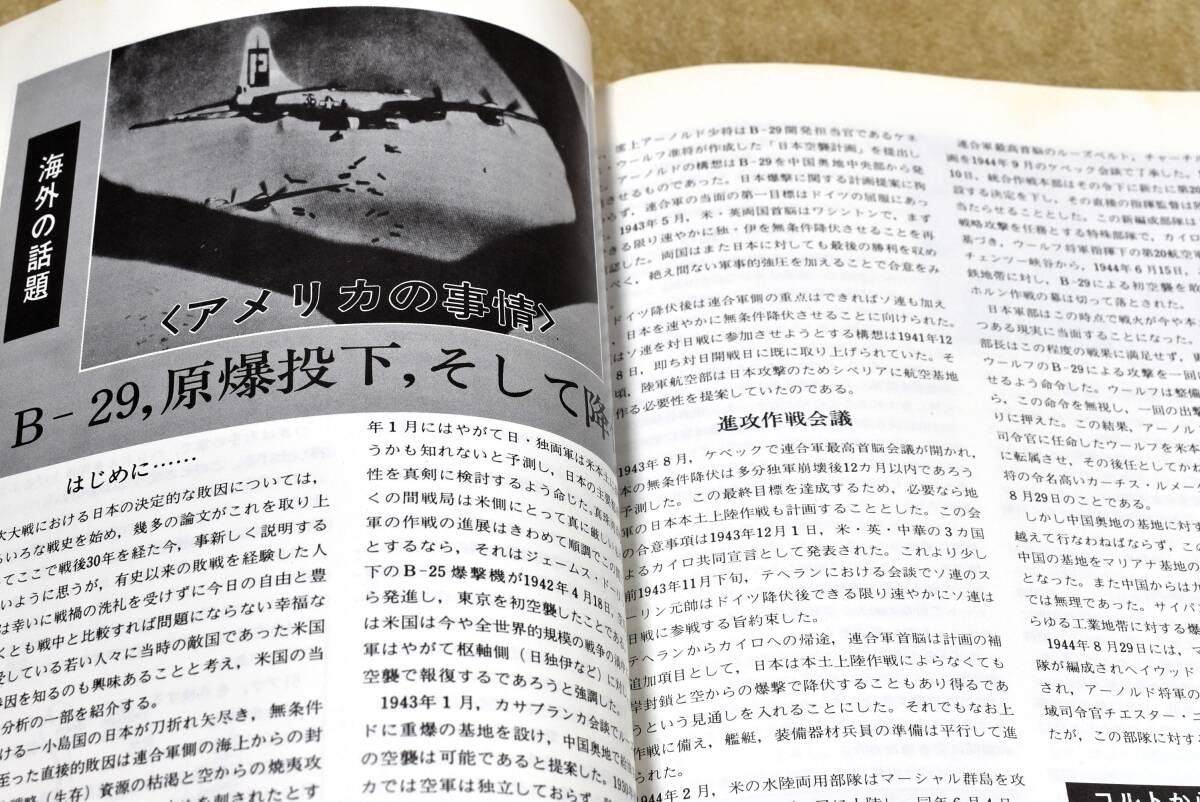 海外の話題
P
〈アメリカの事情〉
B-29,原爆投下,そして降
はじめに……
大戦における日本の決定的な敗因については,
ろいろな戦史を始め,幾多の論文がこれを取り上
てここで戦後30年を経た今,事新しく説明する
いように思うが,有史以来の敗戦を経験した人
は幸いに戦禍の洗礼を受けずに今日の自由と豊
くとも戦中と比較すれば問題にならない幸福な
受している若い人々に当時の敵国であった米国
因を知るのも興味あることと考え,米国の当
分析の一部を紹介する。
ける一小島国の日本が刀折れ矢尽き,無条件
至った直接的敗因は連合軍側の海上からの封
戦略(生存)資源の枯渇と空からの焼夷攻
を刺されたとす
年1月にはやがて日・独両軍は米本土に
うかも知れないと予測し,日本の主要
性を真剣に検討するよう命じた。
くの間戦局は米側にとって真に厳しい
軍の作戦の進展はきわめて順調で,この
とするなら,それはジェームス・ドーリ
下のB-25爆撃機が1942年4月18日,空
ら発進し,東京を初空襲したことである
は米国は今や全世界的規模の戦争の渦中
軍はやがて枢軸側(日独伊など)に対し
空襲で報復するであろうと強調した。
1943年1月,カサブランカ会談でルー
ドに重爆の基地を設け,中国奥地で給油
の空襲は可能であると提案した。1930年
カでは空軍は独立しておらず,
席上アーノルド少将はB-29開発担当官であるケネ
ウールフ准将が作成した「日本空襲計画」を提出し
アーノルドの構想はB-29を中国奥地中央部から発
させるものであった。日本爆撃に関する計画提案に拘
らず,連合軍の当面の第一目標はドイツの屈服にあっ
1943年5月,米・英両国首脳はワシントンで,まず
きる限り速やかに独・伊を無条件降伏させることを再
認した。両国はまた日本に対しても最後の勝利を収め
べく,絶え間ない軍事的強圧を加えることで合意をみ
ドイツ降伏後は連合軍側の重点はできればソ連も加え
,日本を速やかに無条件降伏させることに向けられた。
はソ連を対日戦に参加させようとする構想は1941年12
8日,即ち対日開戦日に既に取り上げられていた。そ
頃,陸軍航空部は日本攻撃のためシベリアに航空基地
作る必要性を提案していたのである。
進攻作戦会議
1943年8月,ケベックで連合軍最高首脳会議が開かれ,
本の無条件降伏は多分独軍崩壊後12カ月以内であろう
予測した。この最終目標を達成するため,必要なら地
軍の日本本土上陸作戦も計画することとした。この会
の合意事項は1943年12月1日,米・英・中華の3カ国
よるカイロ共同宣言として発表された。これより少し
前1943年11月下旬,テヘランにおける会談でソ連のス
ーリン元帥はドイツ降伏後できる限り速やかにソ連は
日戦に参戦する旨約束した。
テヘランからカイロへの帰途,連合軍首脳は計画の補
追加項目として,日本は本土上陸作戦によらなくても
岸封鎖と空からの爆撃で降伏することもあり得るであ
うという見通しを入れることにした。それでもなお上
作戦に備え,艦艇,装備器材兵員の準備は平行して進
られた。
1944年2月,米の水陸両用部隊はマーシャル群島を攻
に上陸し,同年6月4日
連合軍最高首脳のルーズベルト,チャーチ
画を1944年9月のケベック会談で了承した。
10日,統合作戦本部はその令下に新たに第20
設する決定を下し,その直接の指揮監督は
当たらせることとした。この新編成部隊は
戦略攻撃を任務とする特殊部隊で,カイロ
基づき,ウールフ将軍指揮下の第20航空軍
チェンツー峡谷から,1944年6月15日,
鉄地帯に対し,B-29による初空襲を敢
ホルン作戦の幕は切って落とされた。
日本軍部はこの時点で戦火が今や本
つある現実に当面することになった。
部長はこの程度の戦果に満足せず,
ウールフのB-29による攻撃を一回
せるよう命令した。ウールフは整備
ら,この命令を無視し,一回の出撃
りに押えた。この結果,アーノル
司令官に任命したウールフを米本
に転属させ,その後任としてかね
将の令名高いカーチス・ルメー
8月29日のことである。
しかし中国奥地の基地に対す
越えて行なわねばならず,こ
中国の基地をマリアナ基地の
となった。また中国からは
では無理であった。サイパ
らゆる工業地帯に対する爆
1944年8月29日には,マ
隊が編成されヘイウッド
され,アーノルド将軍の
域司令官チエスター・
たが,この部隊に対す